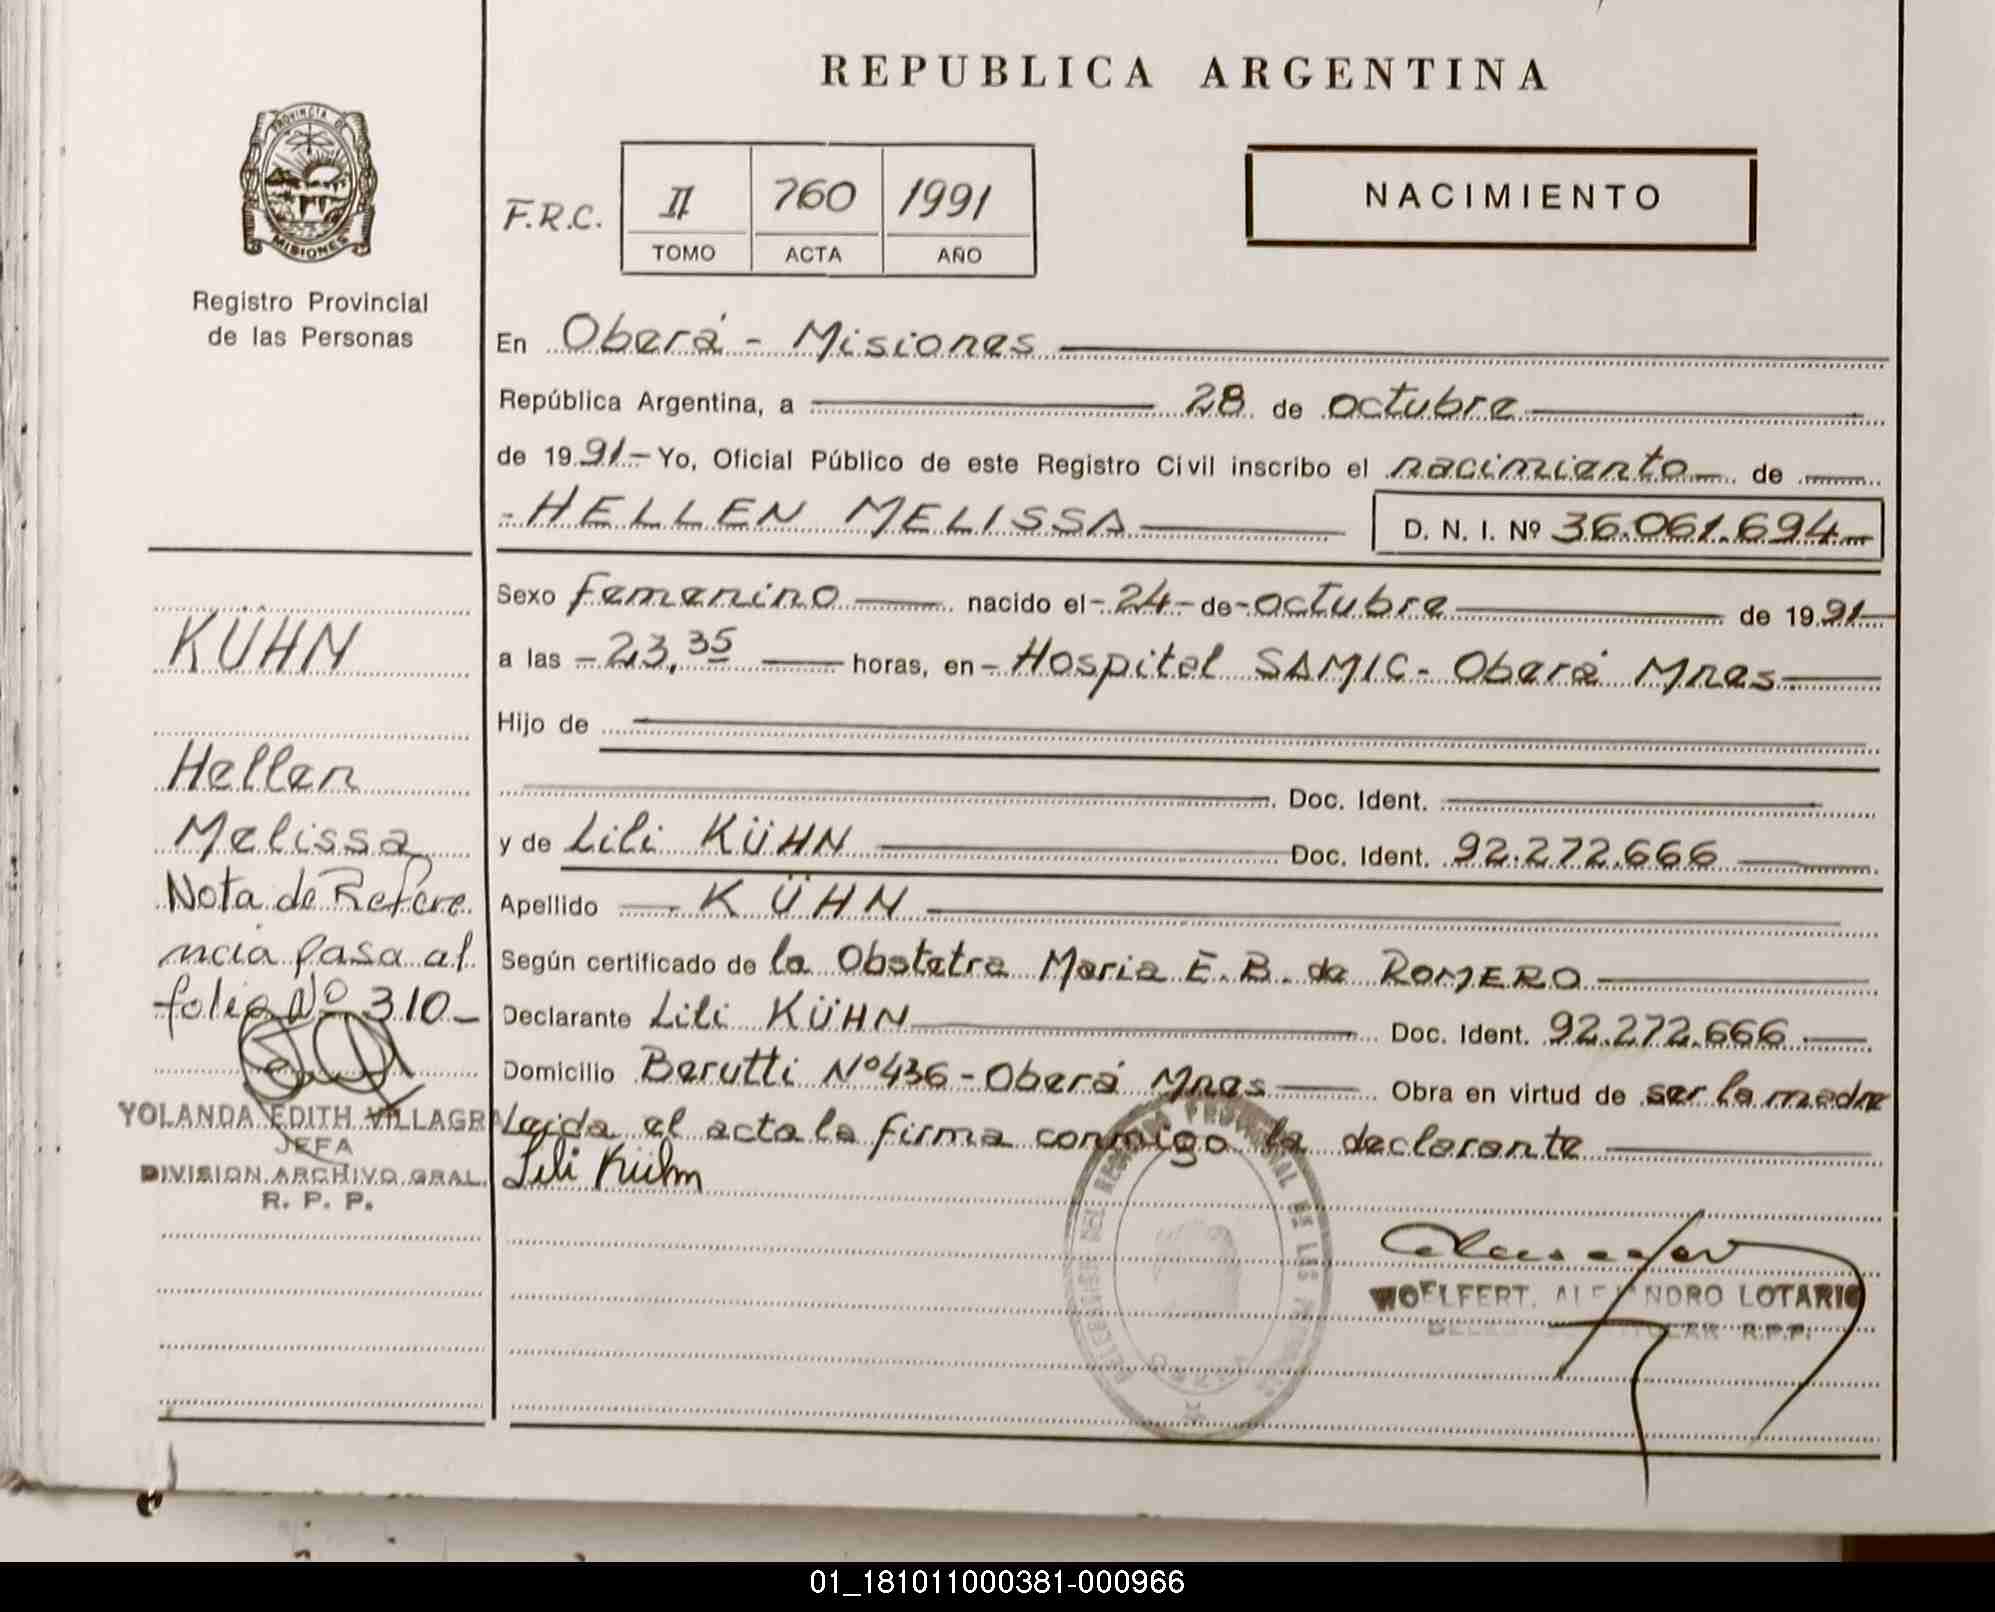 REPUBLICA ARGENTINA
PROVINCIA DE
MISIONES
Registro Provincial
de las Personas
F.R.C.
II 760 1991
TOMO ACTA AÑO
NACIMIENTO
En Oberá - Misiones
República Argentina, a 28 de octubre
de 1991.- Yo, Oficial Público de este Registro Civil inscribo el nacimiento de
- HELLEN MELISSA D. N. I. Nº 36.061.694
Sexo femenino nacido el - 24 - de - octubre de 1991
a las - 23,35 horas, en - Hospital SAMIC - Oberá Mnes
Hijo de
Doc. Ident.
y de Lili KÜHN Doc. Ident. 92.272.666
Apellido KÜHN
Según certificado de la Obstetra Maria E. B. de ROMERO
Declarante Lili KÜHN Doc. Ident. 92.272.666
Domicilio Berutti Nº 436 - Oberá Mnes Obra en virtud de ser la madre
Leida el acta la firma conmigo la declarante
Lili Kühn
KÜHN
Hellen
Melissa
Nota de Refere
ncia pasa al
folio Nº 310 -
YOLANDA EDITH VILLAGRA
JEFA
DIVISION ARCHIVO GRAL.
R. P. P.
WOELFERT, ALEJANDRO LOTARIO
R.P.P.
01_181011000381-000966